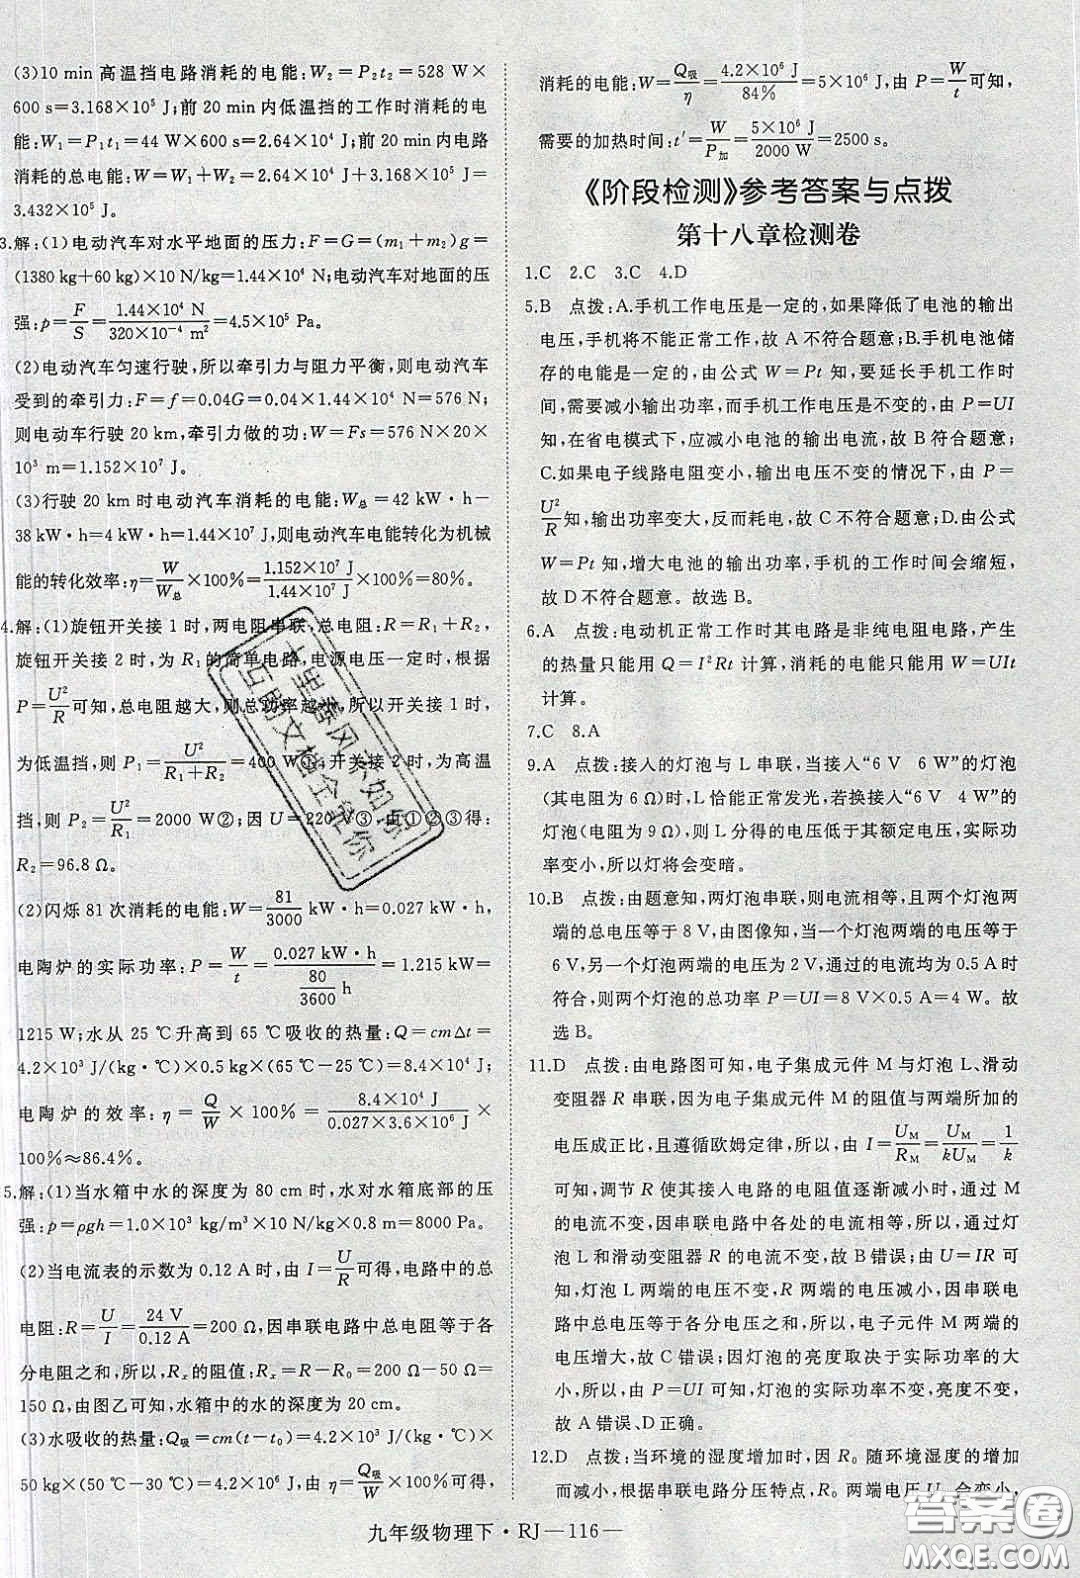 (3)10 min 高温挡电路消耗的电能:W₂=P₂t₂=528 W×
600 s=3.168×10⁵ J;前 20 min内低温挡的工作时消耗的电
能:W₁=P₁t₁=44 W×600 s=2.64×10⁴ J;前 20 min内电路
消耗的总电能:W=W₁+W₂=2.64×10⁴ J+3.168×10⁵ J=
3.432×10⁵ J。
3.解:(1)电动汽车对水平地面的压力:F=G=(m₁+m₂)g=
(1380 kg+60 kg)×10 N/kg=1.44×10⁴ N;电动汽车对地面的压
强:p=F/S=1.44×10⁴ N/320×10⁻⁴ m²=4.5×10⁵ Pa。
(2)电动汽车匀速行驶,所以牵引力与阻力平衡,则电动汽车
受到的牵引力:F=f=0.04G=0.04×1.44×10⁴ N=576 N;
则电动车行驶 20 km,牵引力做的功:W=Fs=576 N×20×
10³ m=1.152×10⁷ J。
(3)行驶 20 km 时电动汽车消耗的电能:W总=42 kW·h-
38 kW·h=4 kW·h=1.44×10⁷ J,则电动汽车电能转化为机械
能的转化效率:η=W/W总×100%=1.152×10⁷ J/1.44×10⁷ J×100%=80%。
4.解:(1)旋钮开关接 1 时,两电阻串联,总电阻:R=R₁+R₂,
旋钮开关接 2 时,为 R₁的简单电路,电源电压一定时,根据
P=U²/R可知,总电阻越大,则总功率越小,所以开关接 1 时,
为低温挡,则 P₁=U²/R₁+R₂=400 W①;开关接 2 时,为高温
挡,则 P₂=U²/R₁=2000 W②;因 U=220 V③,由①②③得:
R₂=96.8 Ω。
(2)闪烁 81 次消耗的电能:W=81/3000 kW·h=0.027 kW·h,
电陶炉的实际功率:P=W/t=0.027 kW·h/(80/3600 h)=1.215 kW=
1215 W;水从 25 ℃升高到 65 ℃吸收的热量:Q=cmΔt=
4.2×10³ J/(kg·℃)×0.5 kg×(65 ℃-25 ℃)=8.4×10⁴ J,
电陶炉的效率:η=Q/W×100%=8.4×10⁴ J/0.027×3.6×10⁶ J×
100%≈86.4%。
5.解:(1)当水箱中水的深度为 80 cm 时,水对水箱底部的压
强:p=ρgh=1.0×10³ kg/m³×10 N/kg×0.8 m=8000 Pa。
(2)当电流表的示数为 0.12 A时,由 I=U/R可得,电路中的总
电阻:R=U/I=24 V/0.12 A=200 Ω,因串联电路中总电阻等于各
分电阻之和,所以,Rₓ的阻值:Rₓ=R-R₀=200 Ω-50 Ω=
150 Ω,由图乙可知,水箱中的水的深度为 20 cm。
(3)水吸收的热量:Q吸=cm(t-t₀)=4.2×10³ J/(kg·℃)×
50 kg×(50 ℃-30 ℃)=4.2×10⁶ J,由 η=Q吸/W×100%可得,
消耗的电能:W=Q吸/η=4.2×10⁶ J/84%=5×10⁶ J,由 P=W/t可知,
需要的加热时间:t′=W/P加=5×10⁶ J/2000 W=2500 s。
《阶段检测》参考答案与点拨
第十八章检测卷
1.C 2.C 3.C 4.D
5.B 点拨:A.手机工作电压是一定的,如果降低了电池的输出
电压,手机将不能正常工作,故 A不符合题意;B.手机电池储
存的电能是一定的,由公式 W=Pt 知,要延长手机工作时
间,需要减小输出功率,而手机工作电压是不变的,由 P=UI
知,在省电模式下,应减小电池的输出电流,故 B 符合题意;
C.如果电子线路电阻变小,输出电压不变的情况下,由 P=
U²/R知,输出功率变大,反而耗电,故 C不符合题意;D.由公式
W=Pt 知,增大电池的输出功率,手机的工作时间会缩短,
故 D不符合题意。故选 B。
6.A 点拨:电动机正常工作时其电路是非纯电阻电路,产生
的热量只能用 Q=I²Rt 计算,消耗的电能只能用 W=UIt
计算。
7.C 8.A
9.A 点拨:接入的灯泡与 L 串联,当接入“6 V 6 W”的灯泡
(其电阻为 6 Ω)时,L恰能正常发光,若换接入“6 V 4 W”的
灯泡(电阻为 9 Ω),则 L 分得的电压低于其额定电压,实际功
率变小,所以灯将会变暗。
10.B 点拨:由题意知,两灯泡串联,则电流相等,且两个灯泡两
端的总电压等于 8 V,由图像知,当一个灯泡两端的电压为
6 V,另一个灯泡两端的电压为 2 V,通过的电流均为 0.5 A时
符合,则两个灯泡的总功率 P=UI=8 V×0.5 A=4 W。故
选 B。
11.D 点拨:由电路图可知,电子集成元件 M 与灯泡 L、滑动
变阻器 R 串联,因为电子集成元件 M 的阻值与两端所加的
电压成正比,且遵循欧姆定律,所以,由 I=U_M/R_M=U_M/kU_M=1/k
可知,调节 R 使其接入电路的电阻值逐渐减小时,通过 M
的电流不变,因串联电路中各处的电流相等,所以,通过灯
泡 L和滑动变阻器 R 的电流不变,故 B错误;由 U=IR 可
知,灯泡 L 两端的电压不变,R 两端的电压减小,因串联电
路中总电压等于各分电压之和,所以,电子元件 M 两端的
电压增大,故 C错误;因灯泡的亮度取决于实际功率的大
小,所以,由 P=UI 可知,灯泡的实际功率不变,亮度不变,
故 A 错误、D 正确。
12.D 点拨:当环境的湿度增加时,因 R₀ 随环境湿度的增大
而增大,根据串联电路分压特点,R₀ 两端电压 U₀ 会变小,
九年级物理下·RJ—116—
十里春风不如你
互助文档全靠你
答案圈
MXQE.COM